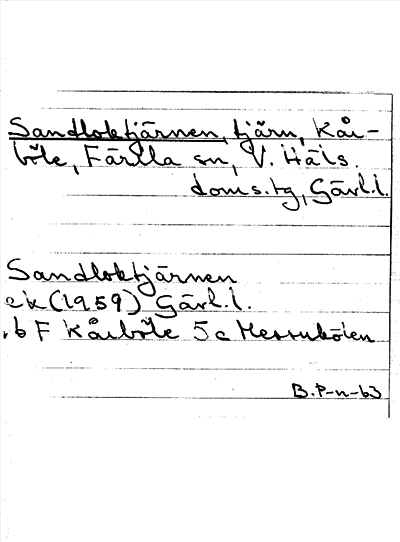 Sandloktjärnen, tjärn, Kåi-
böle, Färila sn, V. Häls.
doms.tg, Gävl.l.
Sandloktjärnen
ek (1959) Gävl.l.
b F Kåiböle 5 c
B.P-n-63